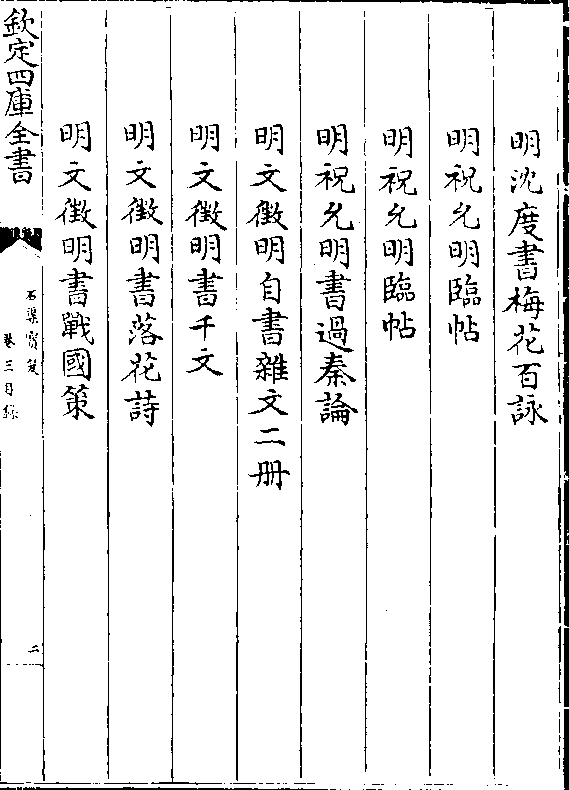 明沈度書梅花百詠
明祝允明臨帖
明祝允明臨帖
明祝允明書過秦論
明文徵明自書雜文二册
明文徵明書千文
明文徵明書落花詩
明文徵明書戰國策
欽定四庫全書
石渠寶笈
卷三目錄
二